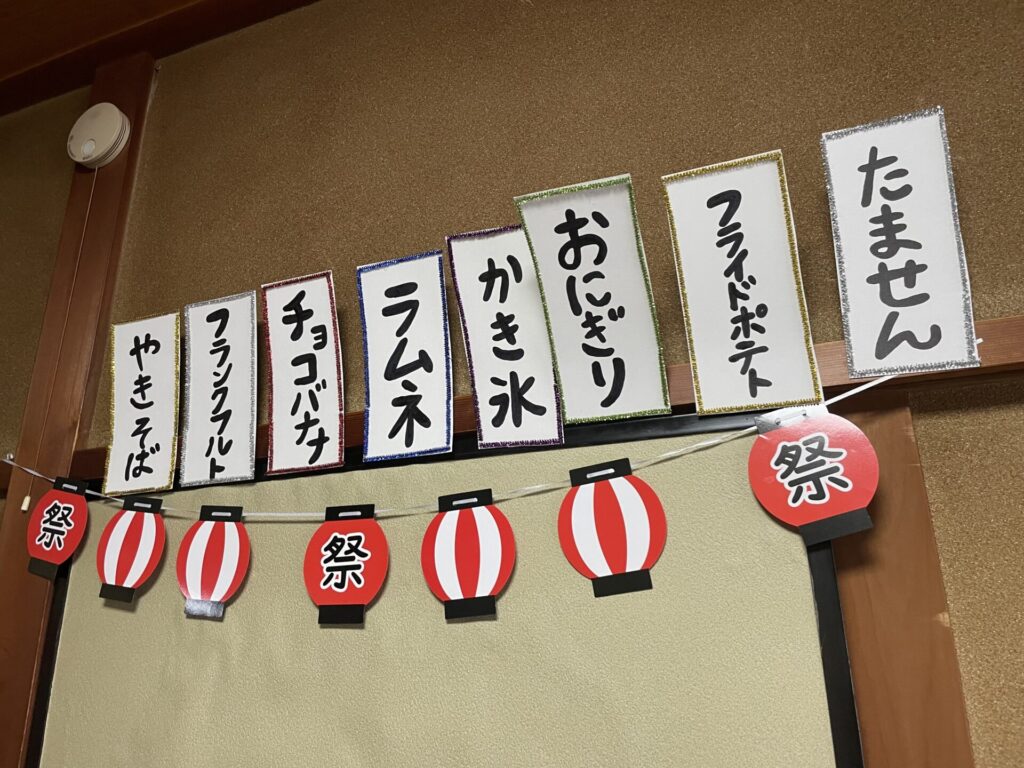 やきそば
フランクフルト
チョコバナナ
ラムネ
かき氷
おにぎり
フライドポテト
たません
祭
祭
祭